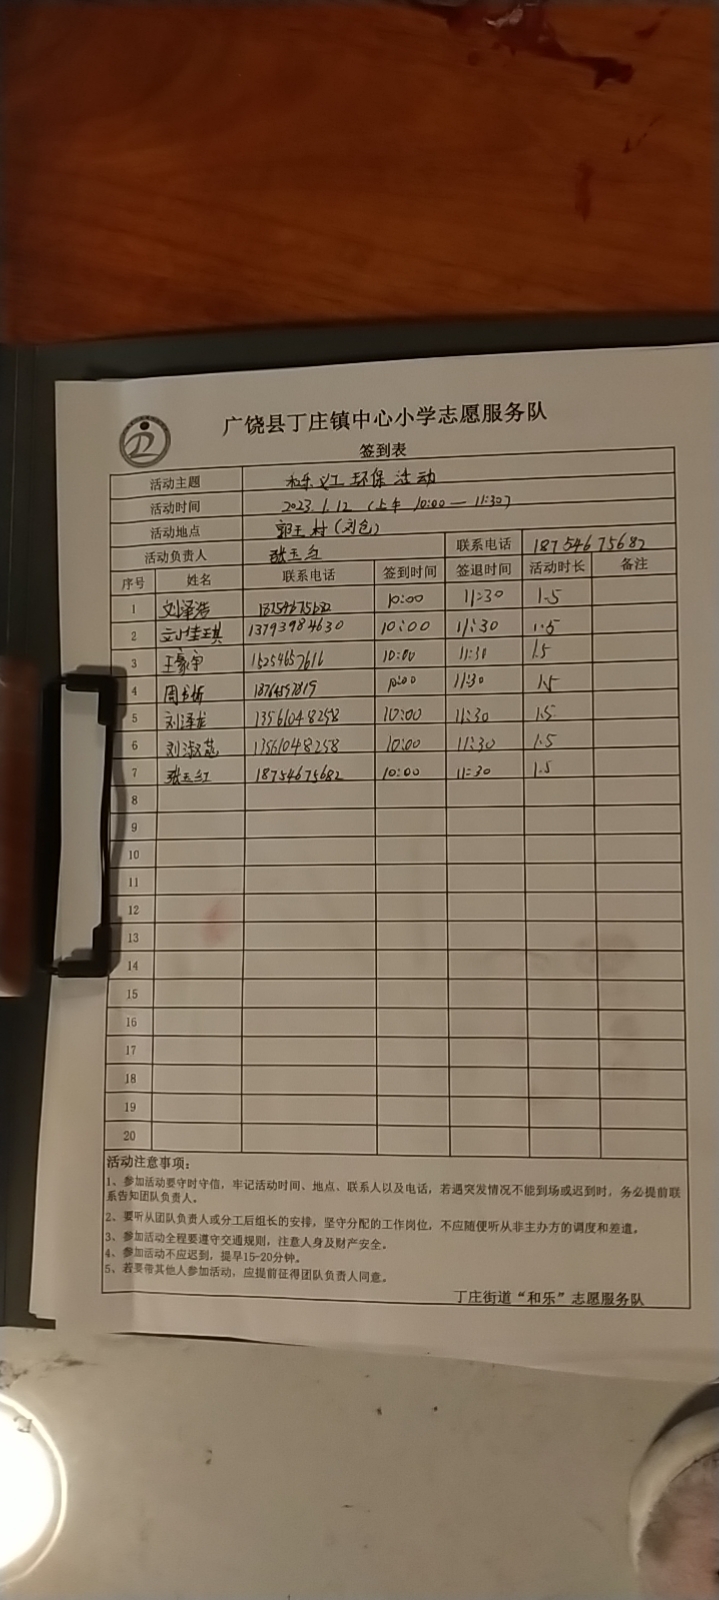 广饶县丁庄镇中心小学志愿服务队
签到表
活动主题 和乐义工环保活动
活动时间 2023.1.12 (上午 10:00—11:30)
活动地点 郭王村(刘仓)
活动负责人 张玉红 联系电话 18754675682
序号 姓名 联系电话 签到时间 签退时间 活动时长 备注
1 刘泽浩 18754675682 10:00 11:30 1.5
2 13793984630 10:00 11:30 1.5
3 王豪宇 15254657616 10:00 11:30 1.5
4 10:00 11:30 1.5
5 刘泽龙 13561048258 10:00 11:30 1.5
6 刘淑蕊 13561048258 10:00 11:30 1.5
7 张玉红 18754675682 10:00 11:30 1.5
8
9
10
11
12
13
14
15
16
17
18
19
20
活动注意事项:
1、参加活动要守时守信,牢记活动时间、地点、联系人以及电话,若遇突发情况不能到场或迟到时,务必提前联
系告知团队负责人。
2、要听从团队负责人或分工后组长的安排,坚守分配的工作岗位,不应随便听从非主办方的调度和差遣。
3、参加活动全程要遵守交通规则,注意人身及财产安全。
4、参加活动不应迟到,提早15-20分钟。
5、若要带其他人参加活动,应提前征得团队负责人同意。
丁庄街道“和乐”志愿服务队